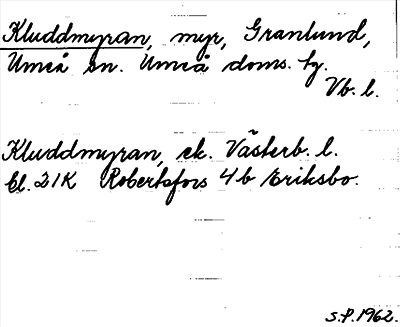 Kluddmyran, myr, Granlund,
Umeå sn. Umeå doms. hg.
Vb. l.
Kluddmyran, ek. Västerb. l.
Bl. 21K Robertsfors 4b Eriksbo.
S.P. 1962.